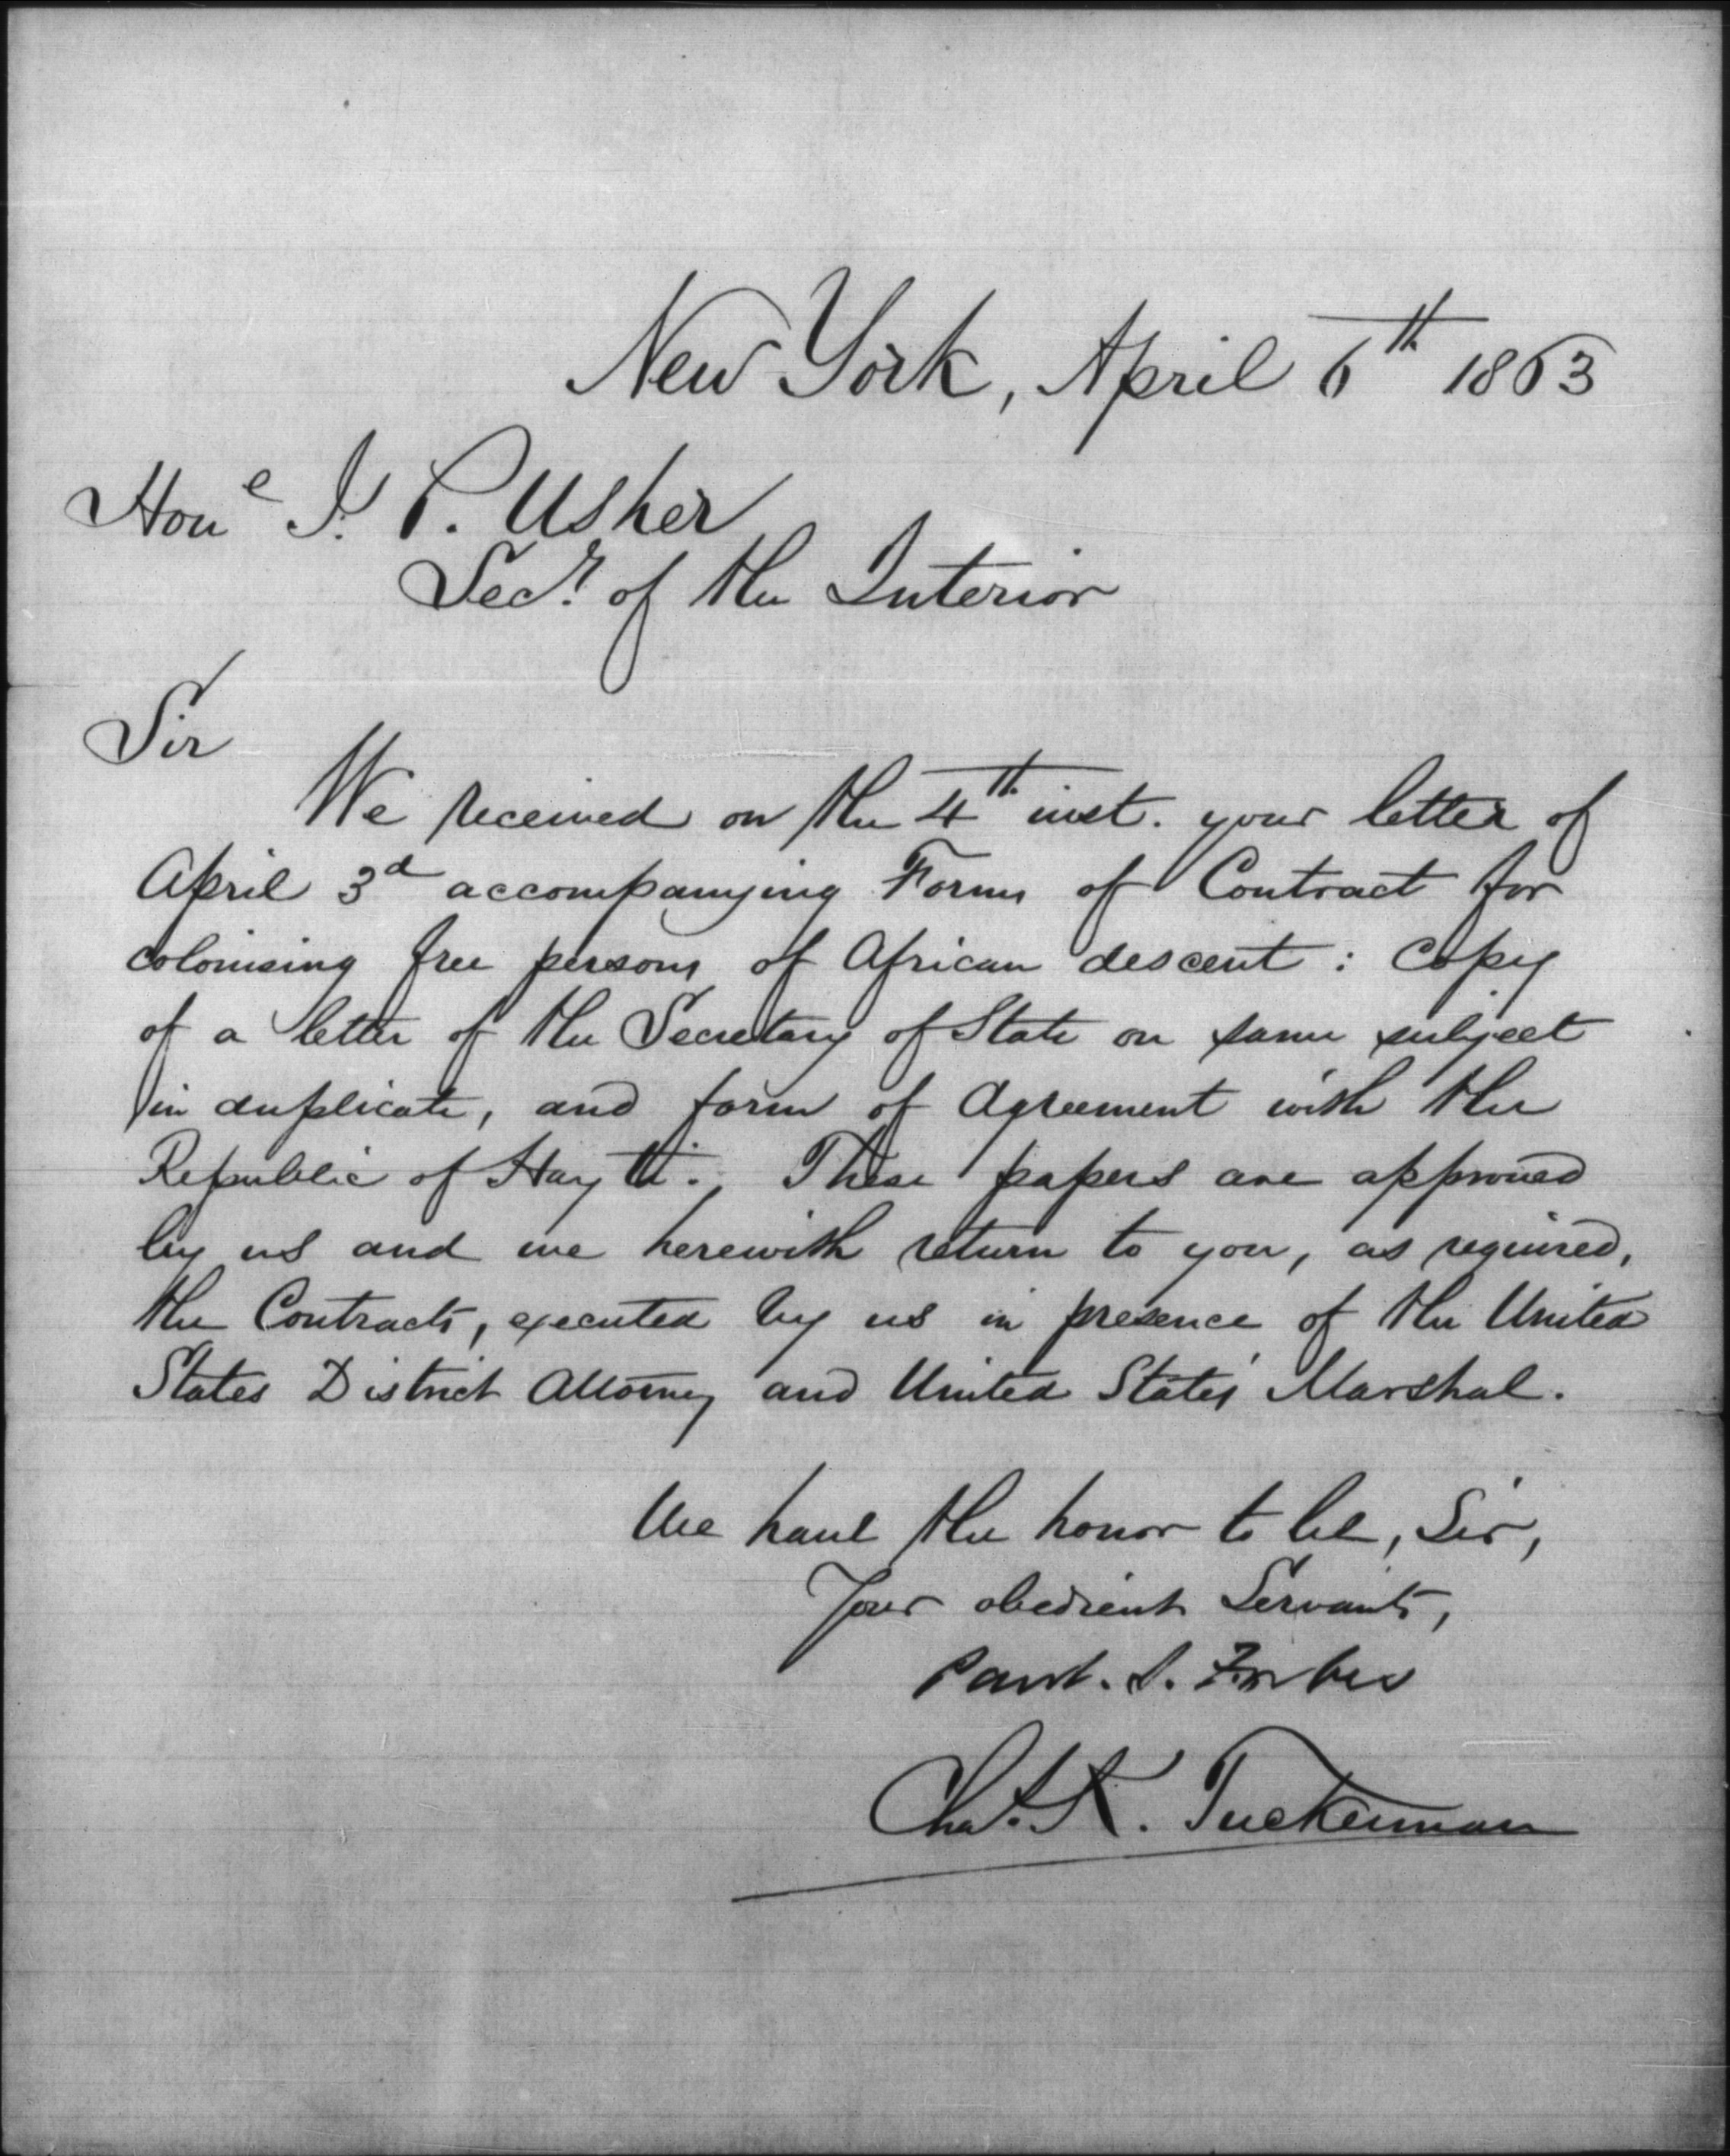 New York, April 6th 1863
Hone J. P. Usher
Secr. of the Interior
Sir
We received on the 4th inst. your letter of
April 3d accompanying Forms of Contract for
colonising free persons of African descent: Copy
of a letter of the Secretary of State on same subject
in duplicate, and form of Agreement with the
Republic of Hayti. These papers are approved
by us and we herewith return to you, as required,
the Contracts, executed by us in presence of the United
States District Attorney and United States Marshal.
We have the honor to be, Sir,
Your obedient Servants,
Paul. S. Forbes
Chas. K. Tuckerman